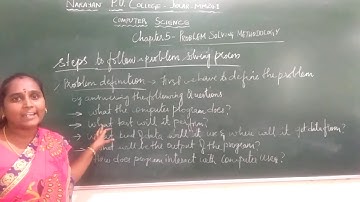 NARAYAN P.U COLLEGE -
COMPUTER SCIENCE
Chapter 5 - PROBLEM SOLVING METHODOLOGY
Steps to follow problem solving process
Problem definition → First we have to define the problem
by answering the following Questions
→ What the computer program does?
→ What task will it perform?
→ kind of data will it use & where will it get data from?
What will be the output of the program?
How does program interact with computer user?